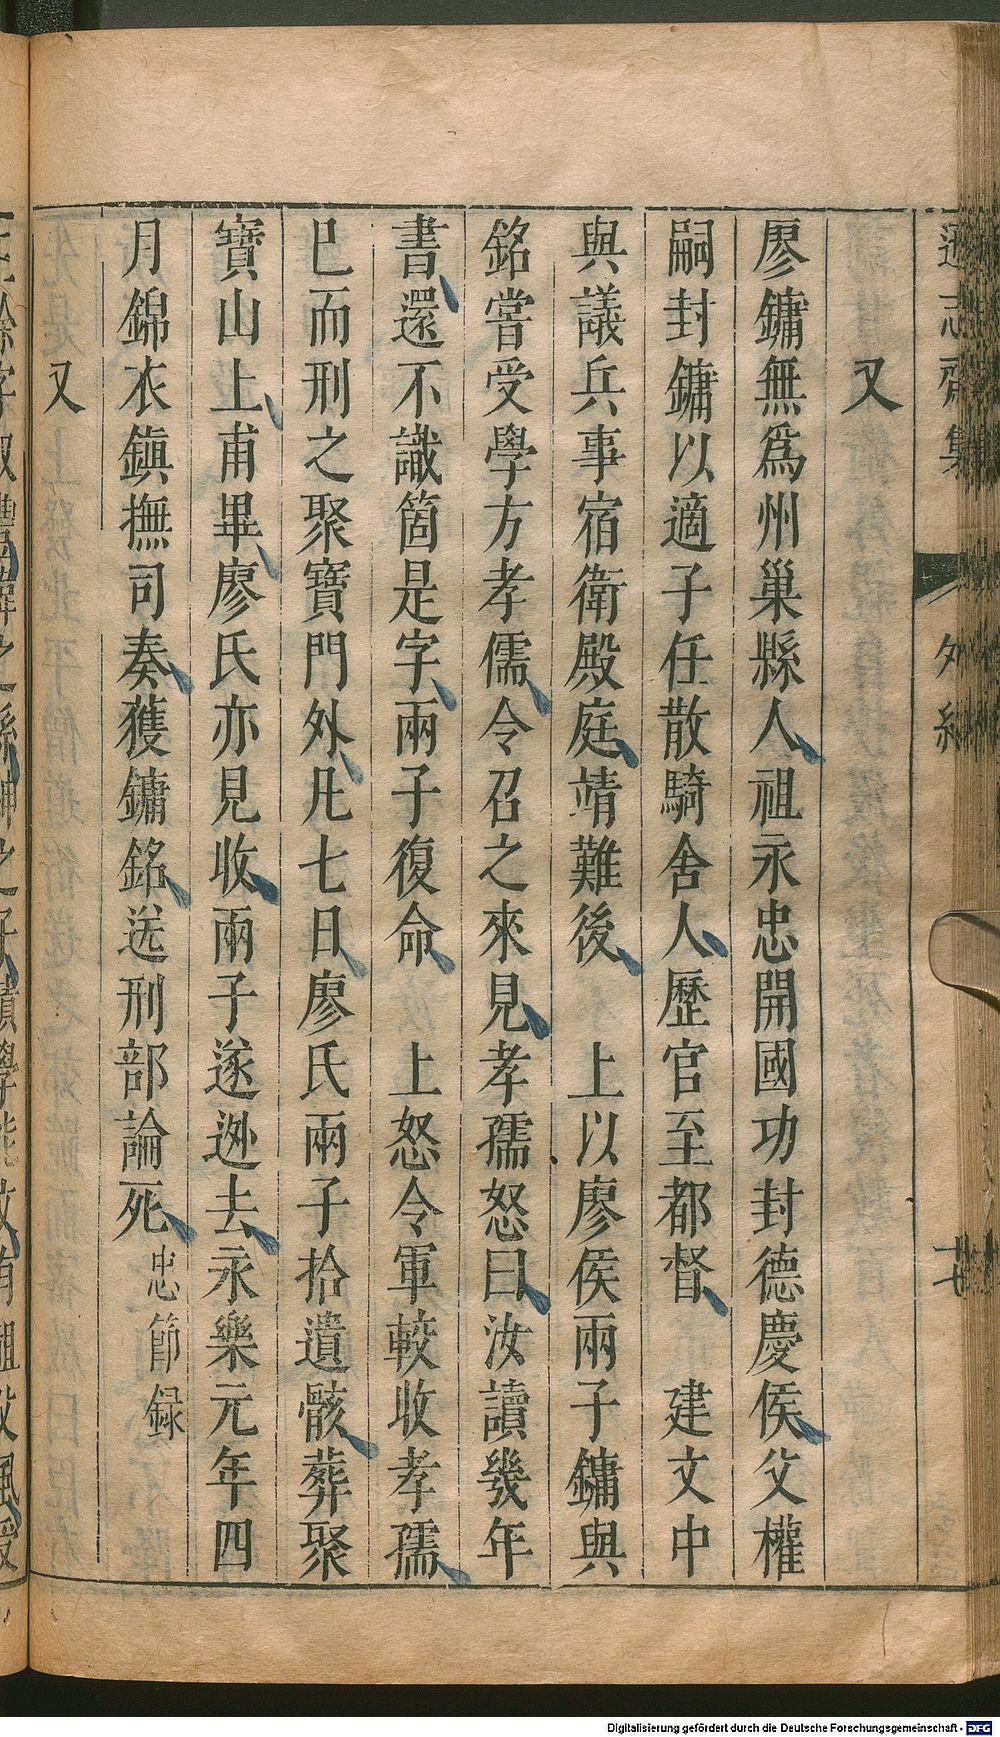 遜志齋集 外紀 十七
又
廖鏞無爲州巢縣人祖永忠開國功封德慶侯父權
嗣封鏞以適子任散騎舍人歷官至都督 建文中
與議兵事宿衛殿庭靖難後 上以廖侯兩子鏞與
銘嘗受學方孝儒令召之來見孝孺怒曰汝讀幾年
書還不識箇是字兩子復命 上怒令軍較收孝孺
巳而刑之聚寶門外凡七日廖氏兩子拾遺骸葬聚
寶山上甫畢廖氏亦見收兩子遂逊去永樂元年四
月錦衣鎮撫司奏獲鏞銘送刑部論死忠節録
又
Digitalisierung gefördert durch die Deutsche Forschungsgemeinschaft - DFG